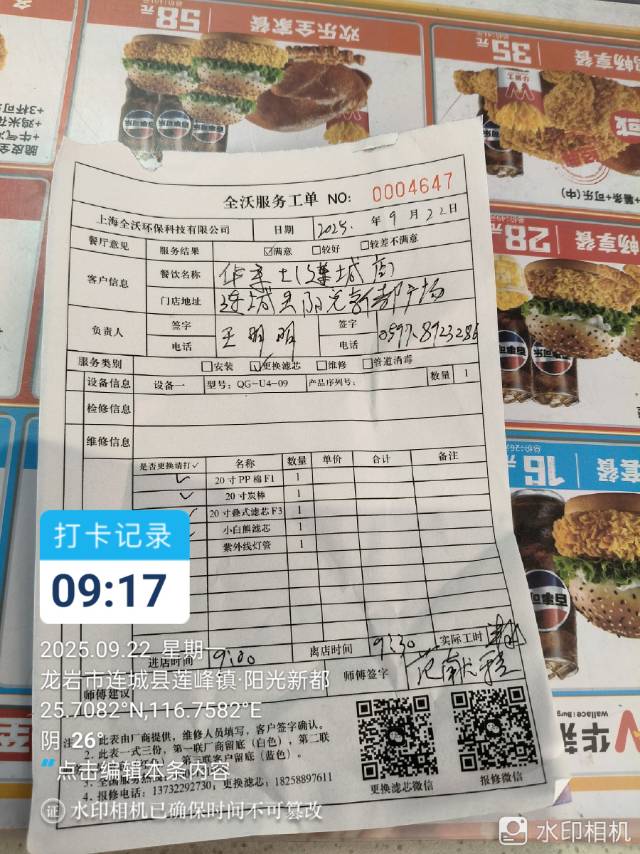 58元
欢乐全家餐
35元
畅享餐
+3杯可
+鸡米花
+牛气
脆皮全
薯条+可乐(中)
28元
畅享餐
16元
套餐
百事可乐
华莱
Wallace:Burg
全沃服务工单 NO: 0004647
上海全沃环保科技有限公司 日期 2025. 年 9 月 22 日
餐厅意见 服务结果 ☑满意 □较好 □较差不满意
客户信息 餐饮名称 华莱士(莲城店
门店地址 连城县阳光新都广场
负责人 签字 王明明 签字
电话 电话 0597-8923286
服务类别 □安装 ☑更换滤芯 □维修 □管道消毒
设备信息 设备一 型号：QG-U4-09 产品序列号： 数量 1
检修信息
维修信息
是否更换请打✓ 名称 数量 单价 合计 备注
✓ 20寸PP棉F1 1
✓ 20寸炭棒 1
20寸叠式滤芯F3 1
小白熊滤芯 1
紫外线灯管 1
进店时间 9:00 离店时间 9:30 实际工时
师傅建议 师傅签字
注： 此表由厂商提供，维修人员填写，客户签字确认。
此表一式三份，第一联厂商留底（白色），第二联
第三联客户留底（蓝色）。
3、全国服务热线
4、报修电话：13732292730，更换滤芯：18258897611
更换滤芯微信
报修微信
打卡记录
09:17
2025.09.22 星期一
龙岩市连城县莲峰镇·阳光新都
25.7082°N,116.7582°E
阴 26°
点击编辑本条内容
证 水印相机已确保时间不可篡改
水印相机